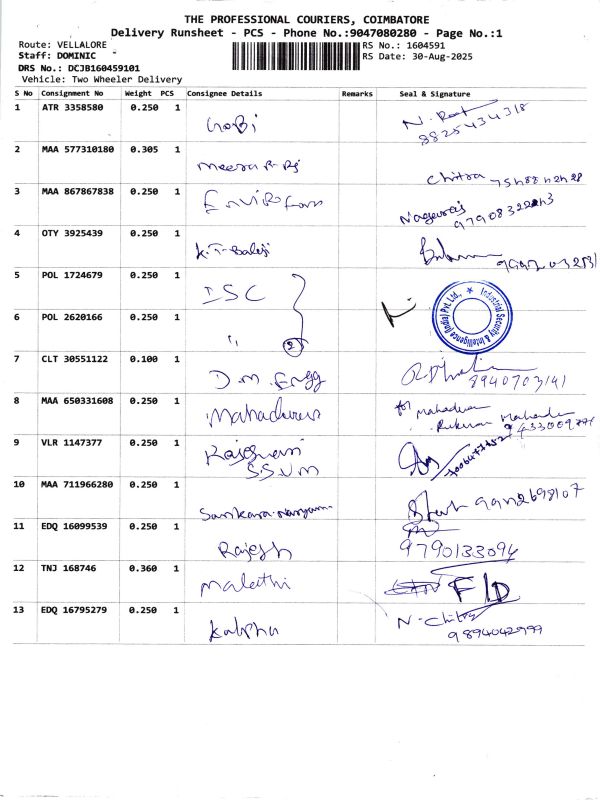 THE PROFESSIONAL COURIERS, COIMBATORE
Delivery Runsheet - PCS - Phone No.:9047080280 - Page No.:1
Route: VELLALORE
Staff: DOMINIC
DRS No.: DCJB160459101
Vehicle: Two Wheeler Delivery
RS No.: 1604591
RS Date: 30-Aug-2025
S No Consignment No Weight PCS Consignee Details Remarks Seal & Signature
1 ATR 3358580 0.250 1 Gobi
8825434318
2 MAA 577310180 0.305 1 Meera
Chitra
3 MAA 867867838 0.250 1 Envirofam
Nagaraj
4 OTY 3925439 0.250 1 K.T. Balaji
5 POL 1724679 0.250 1 ISC
Industrial Security & Intelligence (India) Pvt. Ltd.,
6 POL 2620166 0.250 1 " 2
7 CLT 30551122 0.100 1 D.M. Engg
8940703141
8 MAA 650331608 0.250 1 Mahadevan
for Mahadevan
9 VLR 1147377 0.250 1 Rajeswari
SSVM
10 MAA 711966280 0.250 1
11 EDQ 16099539 0.250 1 Rajesh
9790133094
12 TNJ 168746 0.360 1 Malathi F/D
13 EDQ 16795279 0.250 1 N. Chitra
9894042999